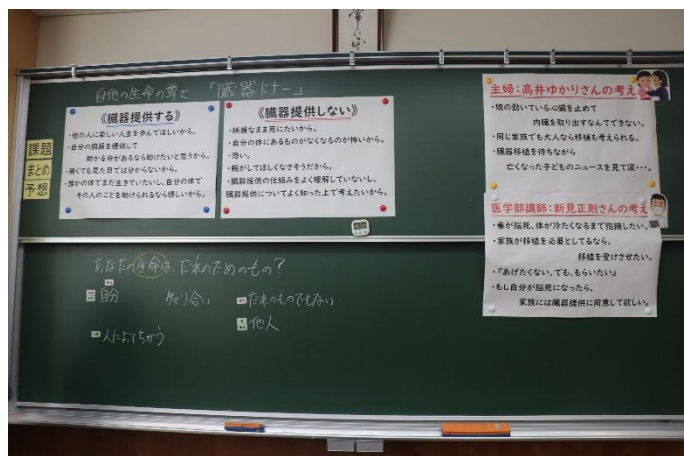 常に
自他の生命の尊さ 「臓器ドナー」
課題
まとめ
予想
《臓器提供する》
・他の人に楽しい人生を歩んでほしいから。
・自分の臓器を提供して
助かる命があるなら助けたいと思うから。
・無くても見た目では分からないから。
・誰かの体でまだ生きていたいし、自分の体で
その人のことを助けられるなら嬉しいから。
《臓器提供しない》
・綺麗なまま死にたいから。
・自分の体にあるものがなくなるのが怖いから。
・恐い。
・親がしてほしくなさそうだから。
・臓器提供の仕組みをよく理解していないし、
臓器提供についてよく知った上で考えたいから。
主婦：高井ゆかりさんの考え
・娘の動いている心臓を止めて
内臓を取り出すなんてできない。
・同じ家族でも大人なら移植も考えられる。
・臓器移植を待ちながら
亡くなった子どものニュースを見て涙・・・。
医学部講師：新見正則さんの考え
・妻が脳死、体が冷たくなるまで抱擁したい。
・家族が移植を必要としてるなら、
移植を受けさせたい。
・『あげたくない、でも、もらいたい』
・もし自分が脳死になったら、
家族には臓器提供に同意して欲しい。
あなたの生命は、だれのためのもの？
自分 知り合い だれのものでもない
人によってちがう 他人